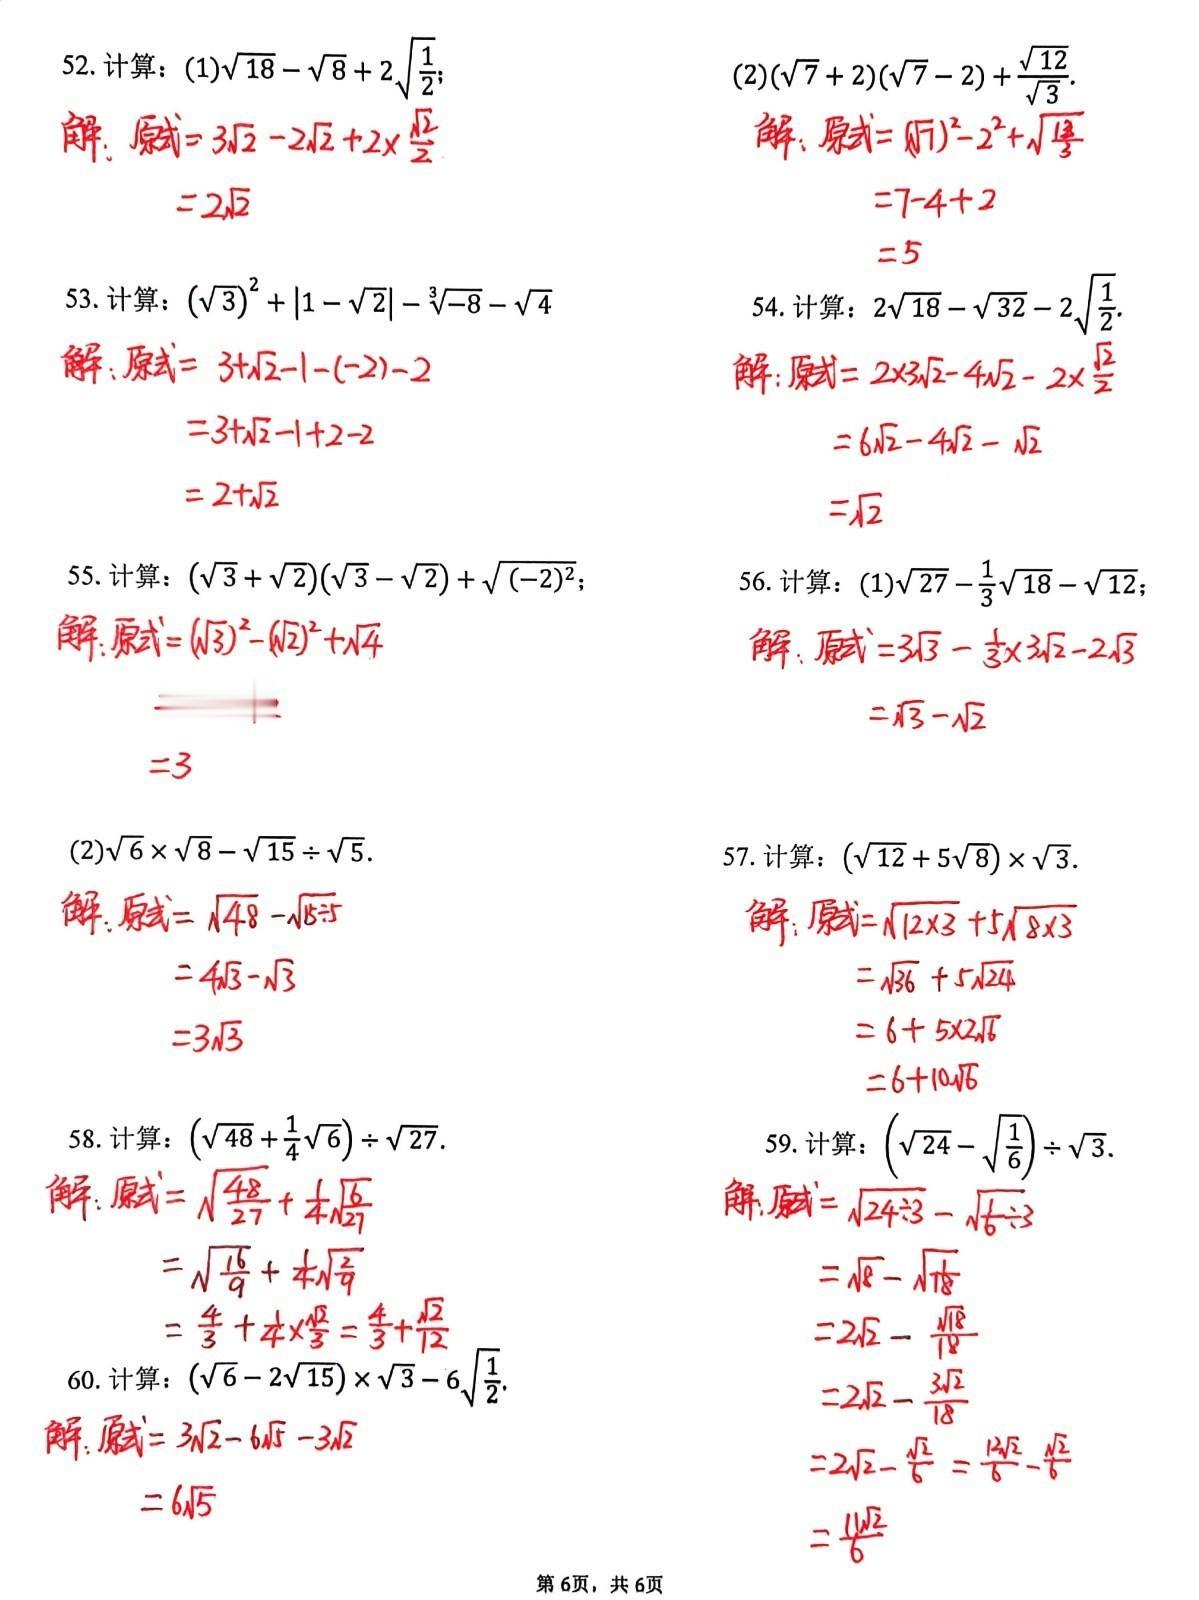 52. 计算：(1)√18 − √8 + 2√(1/2);
解：原式 = 3√2 − 2√2 + 2×√2/2
= 2√2
(2)(√7 + 2)(√7 − 2) + √12/√3.
解：原式 = (√7)² − 2² + √(12/3)
= 7 − 4 + 2
= 5
53. 计算：(√3)² + |1 − √2| − ∛−8 − √4
解：原式 = 3+√2−1−(−2)−2
= 3+√2−1+2−2
= 2+√2
54. 计算：2√18 − √32 − 2√(1/2).
解：原式 = 2×3√2 − 4√2 − 2×√2/2
= 6√2 − 4√2 − √2
= √2
55. 计算：(√3 + √2)(√3 − √2) + √(−2)²;
解：原式 = (√3)² − (√2)² + √4
= 3
56. 计算：(1)√27 − 1/3√18 − √12;
解：原式 = 3√3 − 1/3×3√2 − 2√3
= √3 − √2
(2)√6 × √8 − √15 ÷ √5.
解：原式 = √48 − √(15÷5)
= 4√3 − √3
= 3√3
57. 计算：(√12 + 5√8) × √3.
解：原式 = √(12×3) + 5√(8×3)
= √36 + 5√24
= 6 + 5×2√6
= 6+10√6
58. 计算：(√48 + 1/4√6) ÷ √27.
解：原式 = √(48/27) + 1/4√(6/27)
= √(16/9) + 1/4√(2/9)
= 4/3 + 1/4×√2/3 = 4/3 + √2/12
59. 计算：(√24 − √(1/6)) ÷ √3.
解：原式 = √(24÷3) − √(1/6÷3)
= √8 − √(1/18)
= 2√2 − √18/18
= 2√2 − 3√2/18
= 2√2 − √2/6 = 12√2/6 − √2/6
= 11√2/6
60. 计算：(√6 − 2√15) × √3 − 6√(1/2).
解：原式 = 3√2 − 6√5 − 3√2
= 6√5
第 6页，共 6页